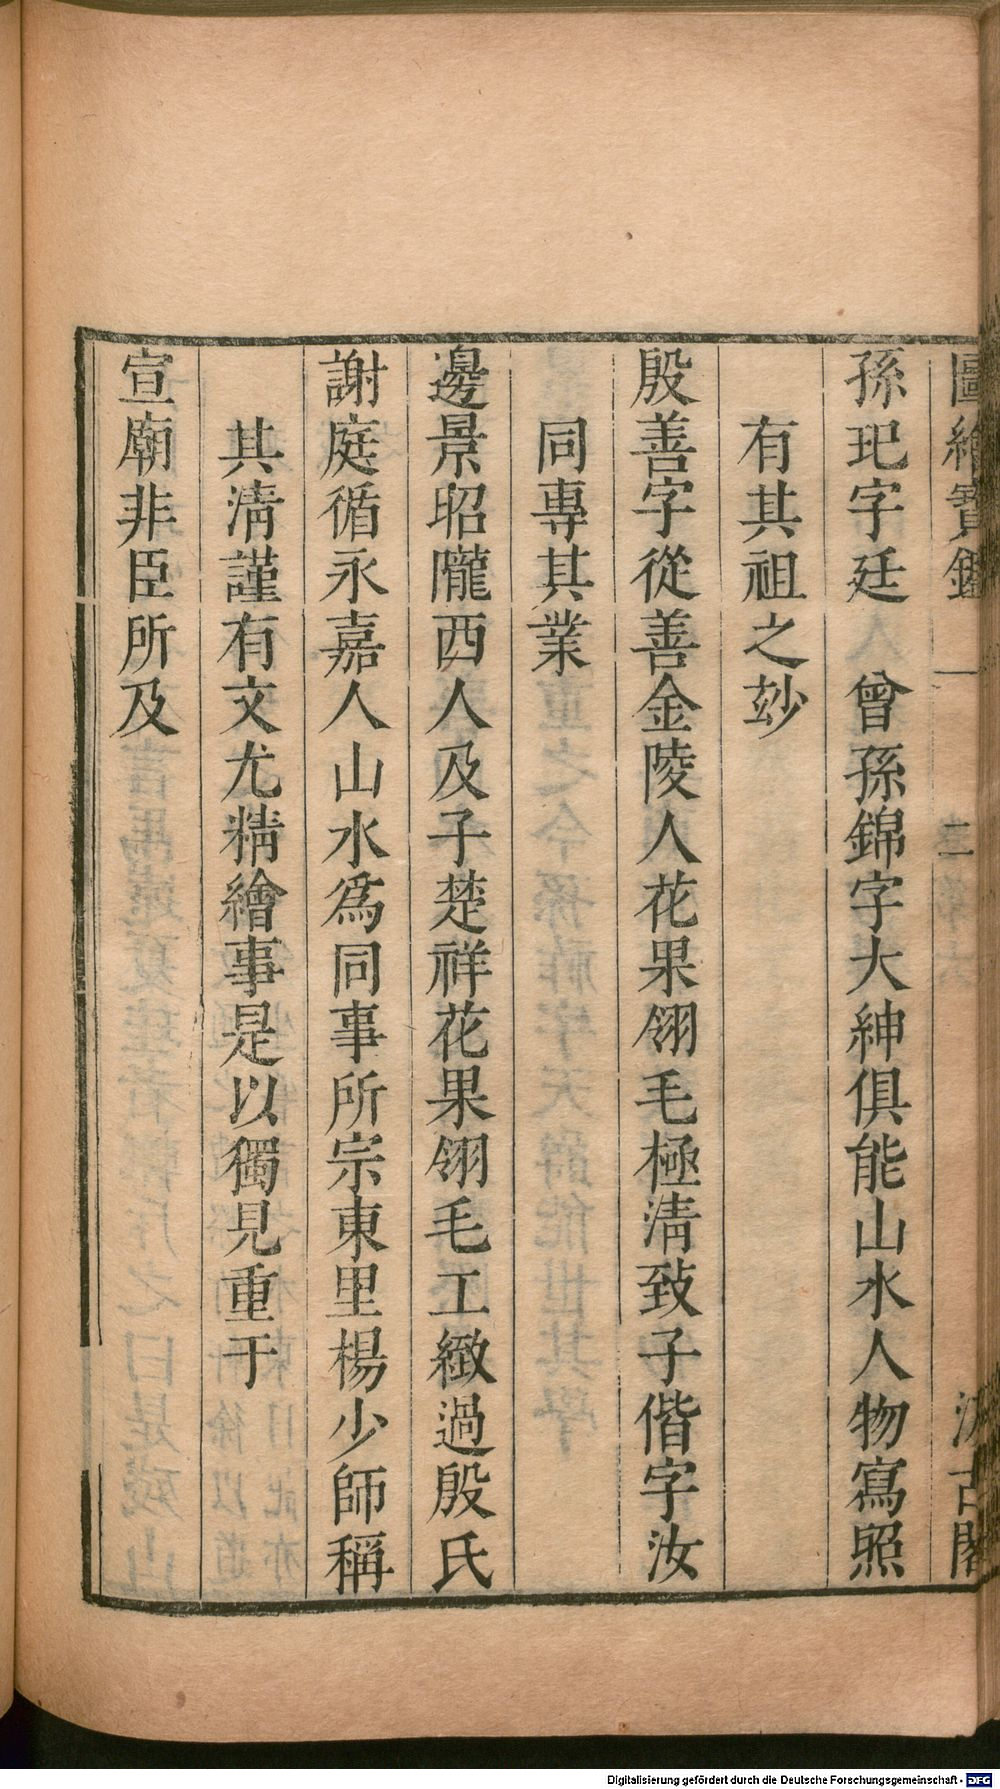 圖繪寶鑑 一 二 汲古閣
孫玘字廷 曾孫錦字大紳俱能山水人物寫照
有其祖之玅
殷善字從善金陵人花果翎毛極淸致子偕字汝
同專其業
邊景昭隴西人及子楚祥花果翎毛工緻過殷氏
謝庭循永嘉人山水爲同事所宗東里楊少師稱
其淸謹有文尤精繪事是以獨見重于
宣廟非臣所及
Digitalisierung gefördert durch die Deutsche Forschungsgemeinschaft - DFG